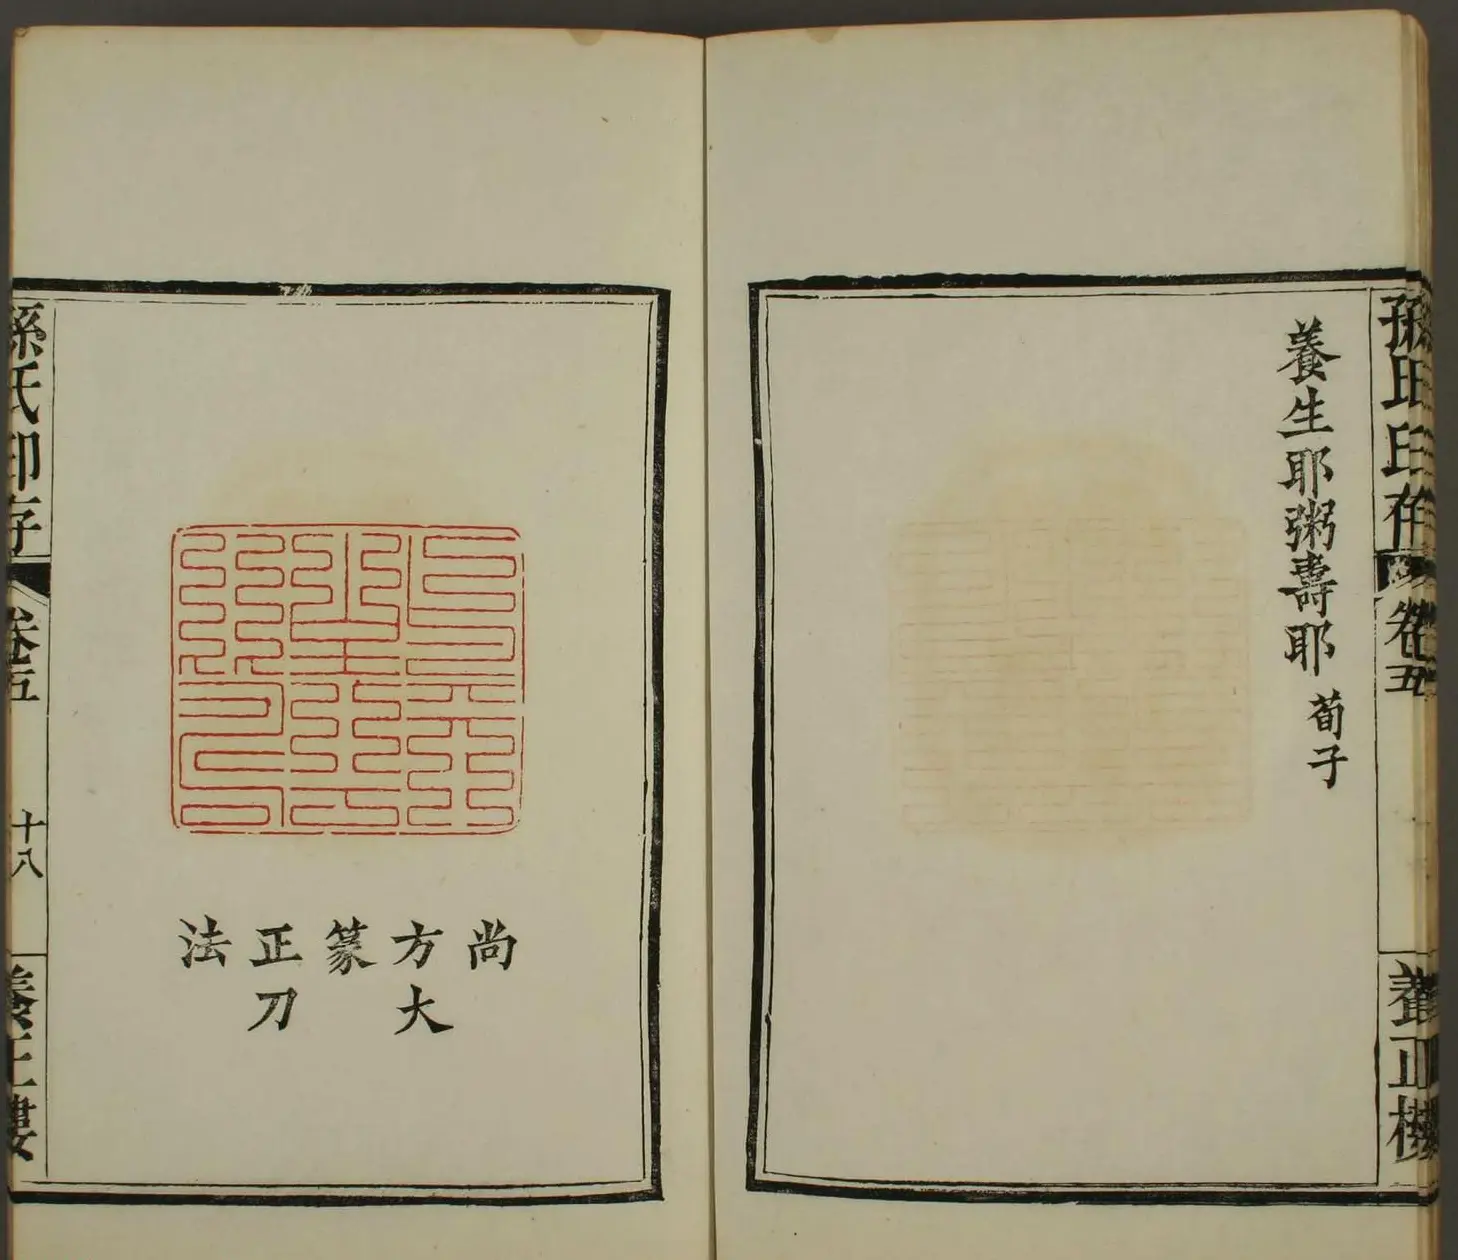 孫氏印存
卷五
養正樓
養生耶粥壽耶
荀子
尚
方大
篆
正刀
法
孫氏印存
卷五
十八
養正樓